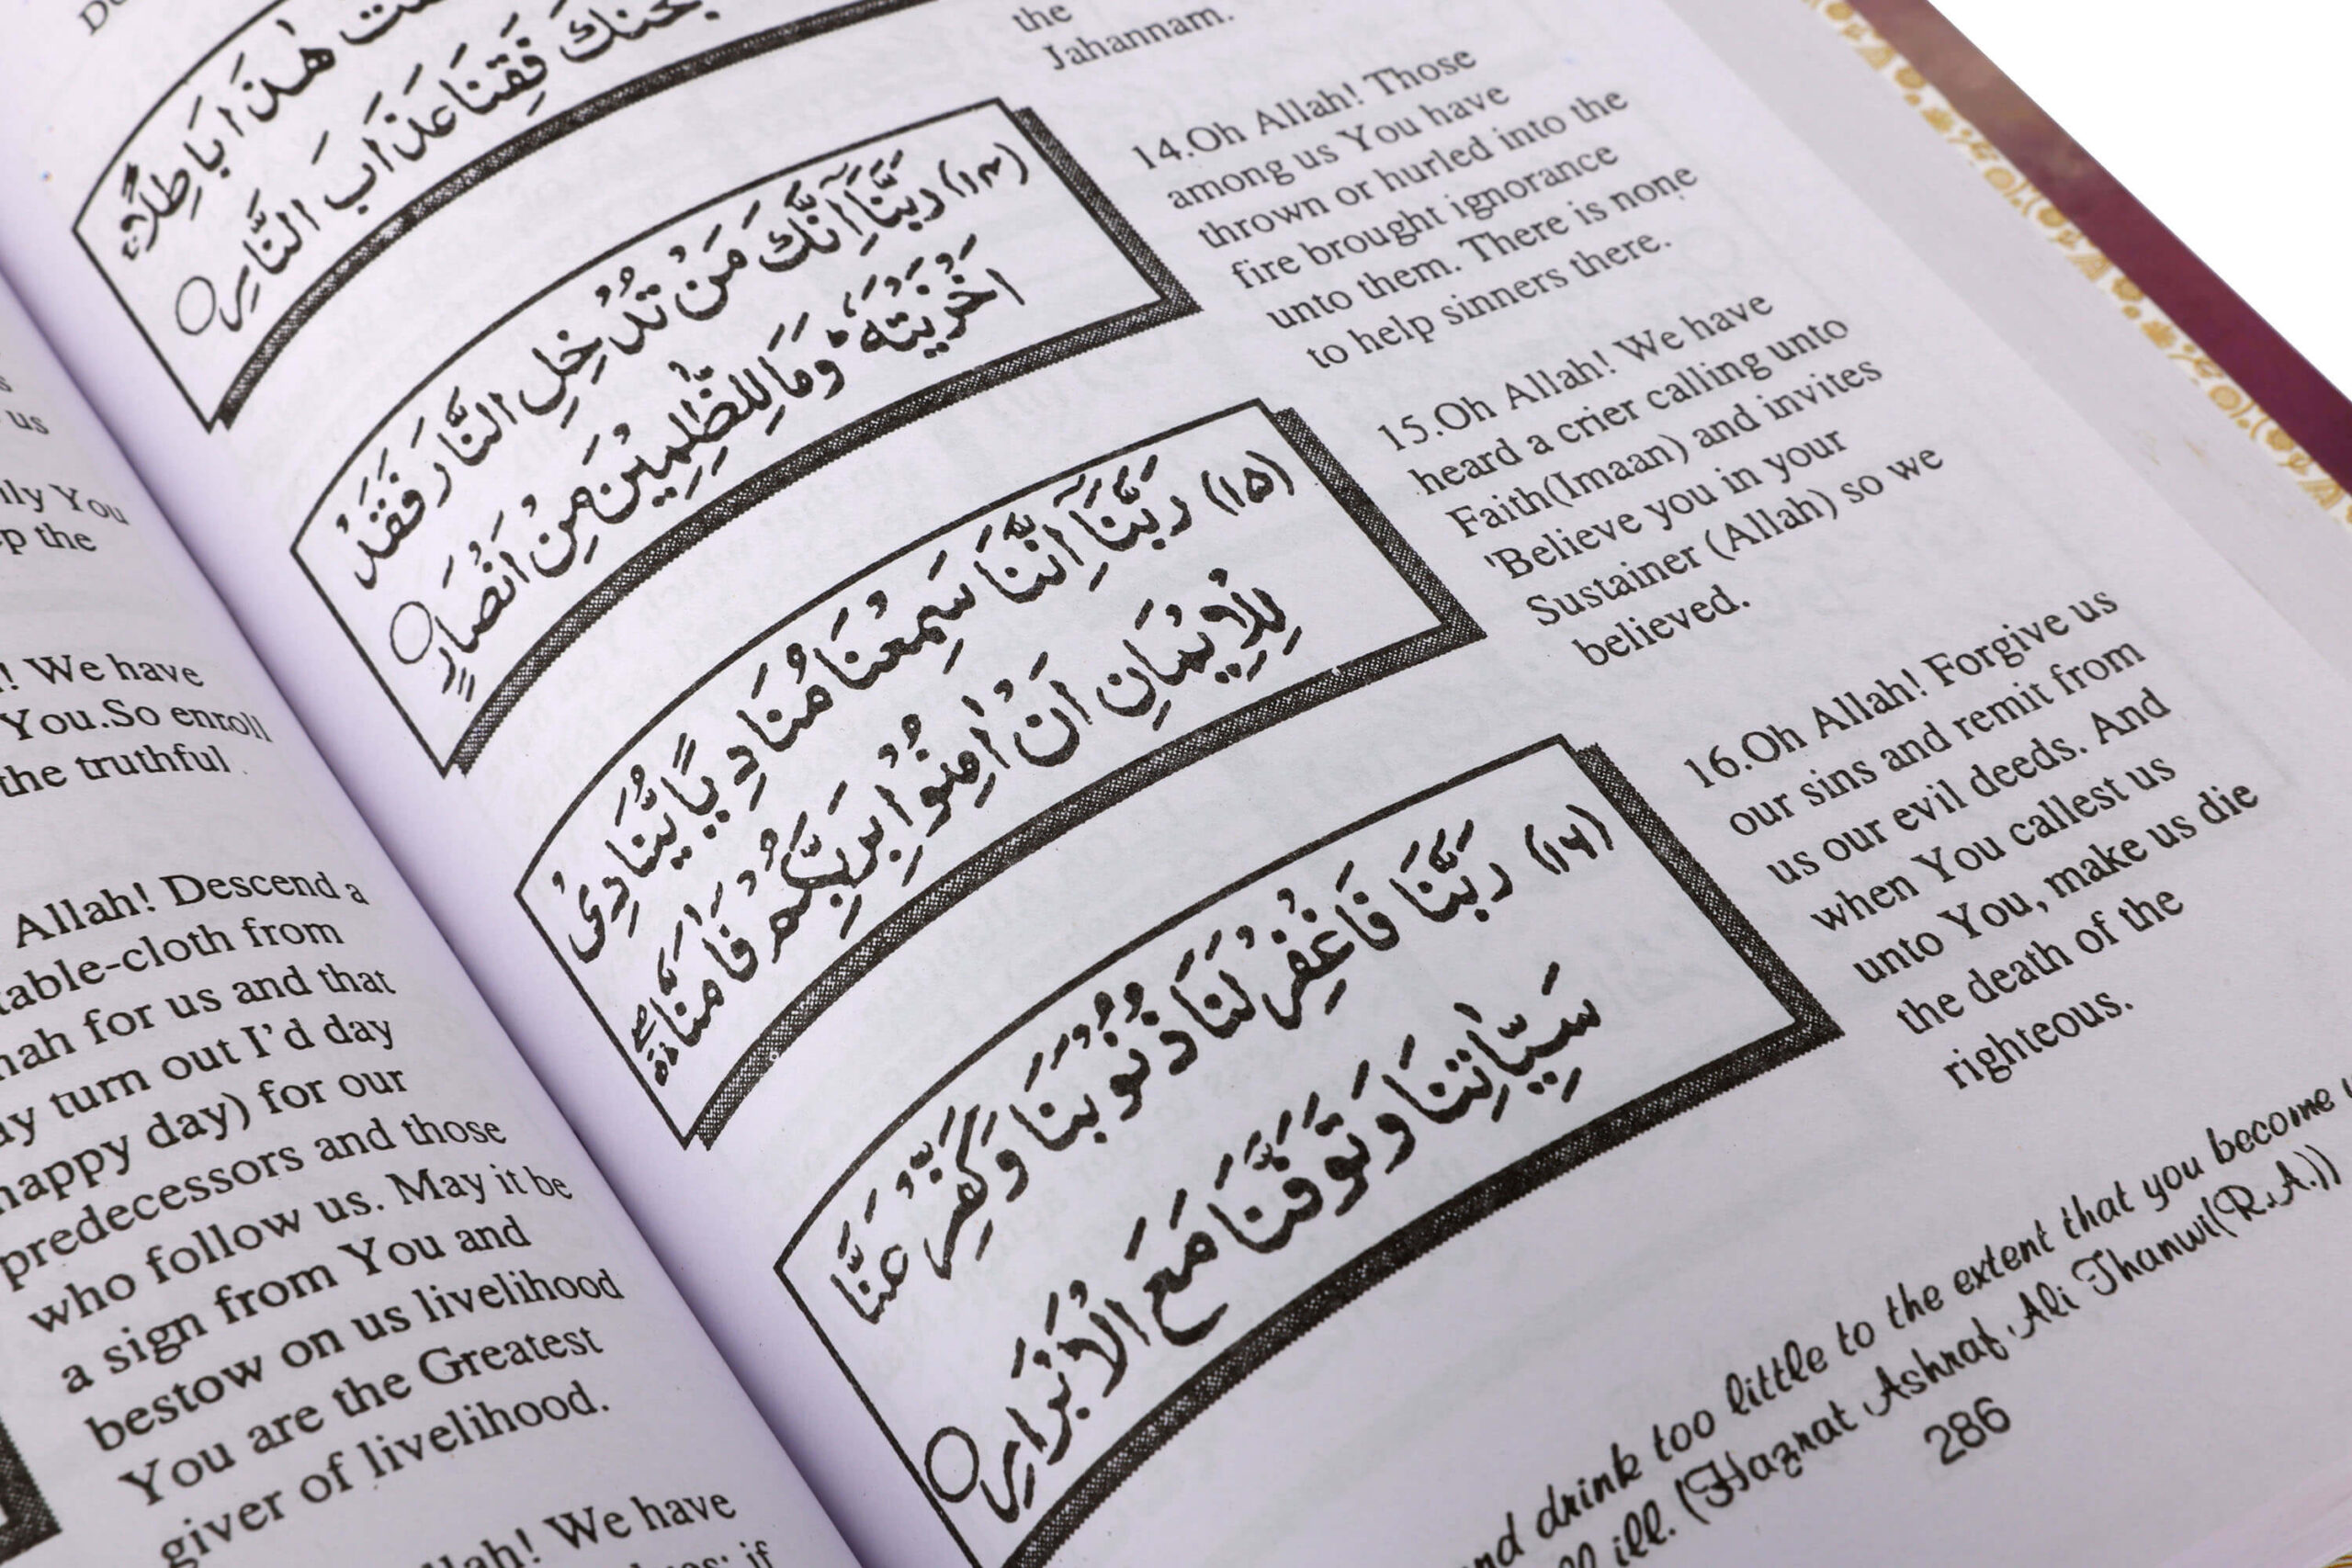 us
You
the
We have
You.So enroll
the truthful
Allah! Descend a
table-cloth from
for us and that
turn out I'd day
happy day) for our
predecessors and those
who follow us. May it be
a sign from You and
bestow on us livelihood
You are the Greatest
giver of livelihood.
We have
if
هٰذَا بَاطِلًا
فَقِنَا عَذَابَ النَّارِ
(١٤) رَبَّنَآ اِنَّكَ مَنْ تُدْخِلِ النَّارَ فَقَدْ
اَخْزَيْتَهٗ ؕ وَمَا لِلظّٰلِمِيْنَ مِنْ اَنْصَارٍ
(١٥) رَبَّنَآ اِنَّنَا سَمِعْنَا مُنَادِيًا يُّنَادِىْ
لِلْاِيْمَانِ اَنْ اٰمِنُوْا بِرَبِّكُمْ فَاٰمَنَّا
(١٦) رَبَّنَا فَاغْفِرْ لَنَا ذُنُوْبَنَا وَكَفِّرْ عَنَّا
سَيِّاٰتِنَا وَتَوَفَّنَا مَعَ الْاَبْرَارِ
the
Jahannam.
14.Oh Allah! Those
among us You have
thrown or hurled into the
fire brought ignorance
unto them. There is none
to help sinners there.
15.Oh Allah! We have
heard a crier calling unto
Faith(Imaan) and invites
'Believe you in your
Sustainer (Allah) so we
believed.
16.Oh Allah! Forgive us
our sins and remit from
us our evil deeds. And
when You callest us
unto You, make us die
the death of the
righteous.
drink too little to the extent that you become
ill. (Hazrat Ashraf Ali Thanwi(R.A.))
286